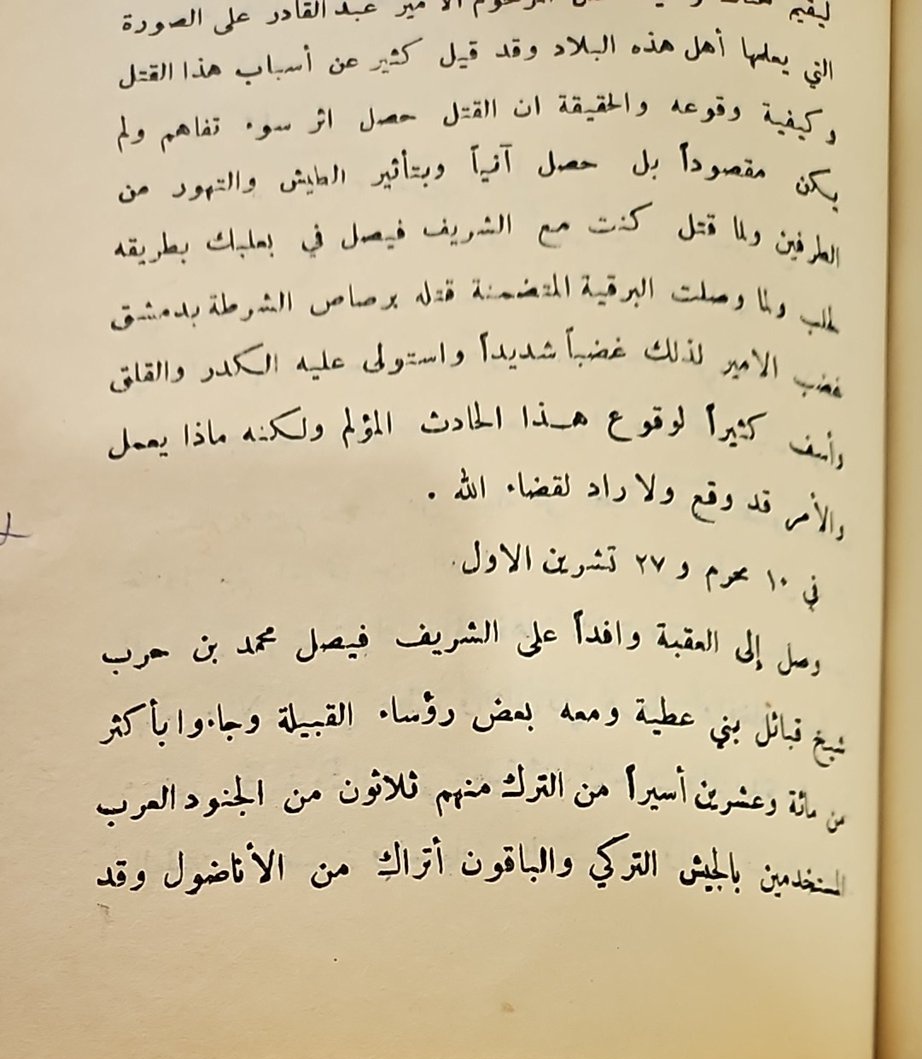 المرحوم الامير عبد القادر على الصورة
التي يعلمها أهل هذه البلاد وقد قيل كثير عن أسباب هذا القتل
وكيفية وقوعه والحقيقة ان القتل حصل اثر سوء تفاهم ولم
يكن مقصوداً بل حصل آنياً وبتأثير الطيش والتهور من
الطرفين ولما قتل كنت مع الشريف فيصل في بعلبك بطريقه
لحلب ولما وصلت البرقية المتضمنة قتله برصاص الشرطة بدمشق
غضب الامير لذلك غضباً شديداً واستولى عليه الكدر والقلق
وأسف كثيراً لوقوع هذا الحادث المؤلم ولكنه ماذا يعمل
والأمر قد وقع ولا راد لقضاء الله .
في ١٠ محرم و ٢٧ تشرين الاول.
وصل إلى العقبة وافداً على الشريف فيصل محمد بن حرب
شيخ قبائل بني عطية ومعه بعض رؤساء القبيلة وجاءوا بأكثر
من مائة وعشرين أسيراً من الترك منهم ثلاثون من الجنود العرب
المستخدمين بالجيش التركي والباقون أتراك من الأناضول وقد